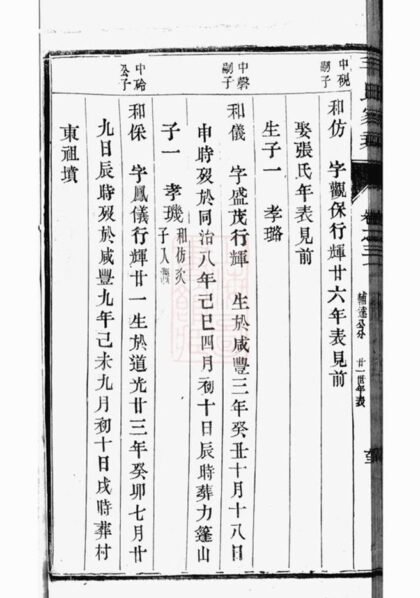 卷之三
輔達公分 廿一世年表
中硯嗣子
和仿 字觀保行輝廿六年表見前
娶張氏年表見前
生子一 孝璐
中磬嗣子
和儀 字盛茂行輝 生於咸豐三年癸丑十月十八日
申時歿於同治八年己巳四月初十日辰時葬力篷山
子一 孝璣 和仿次子入繼
中論公子
和保 字鳳儀行輝廿一生於道光廿三年癸卯七月廿
九日辰時歿於咸豐九年己未九月初十日戌時葬村
東祖墳